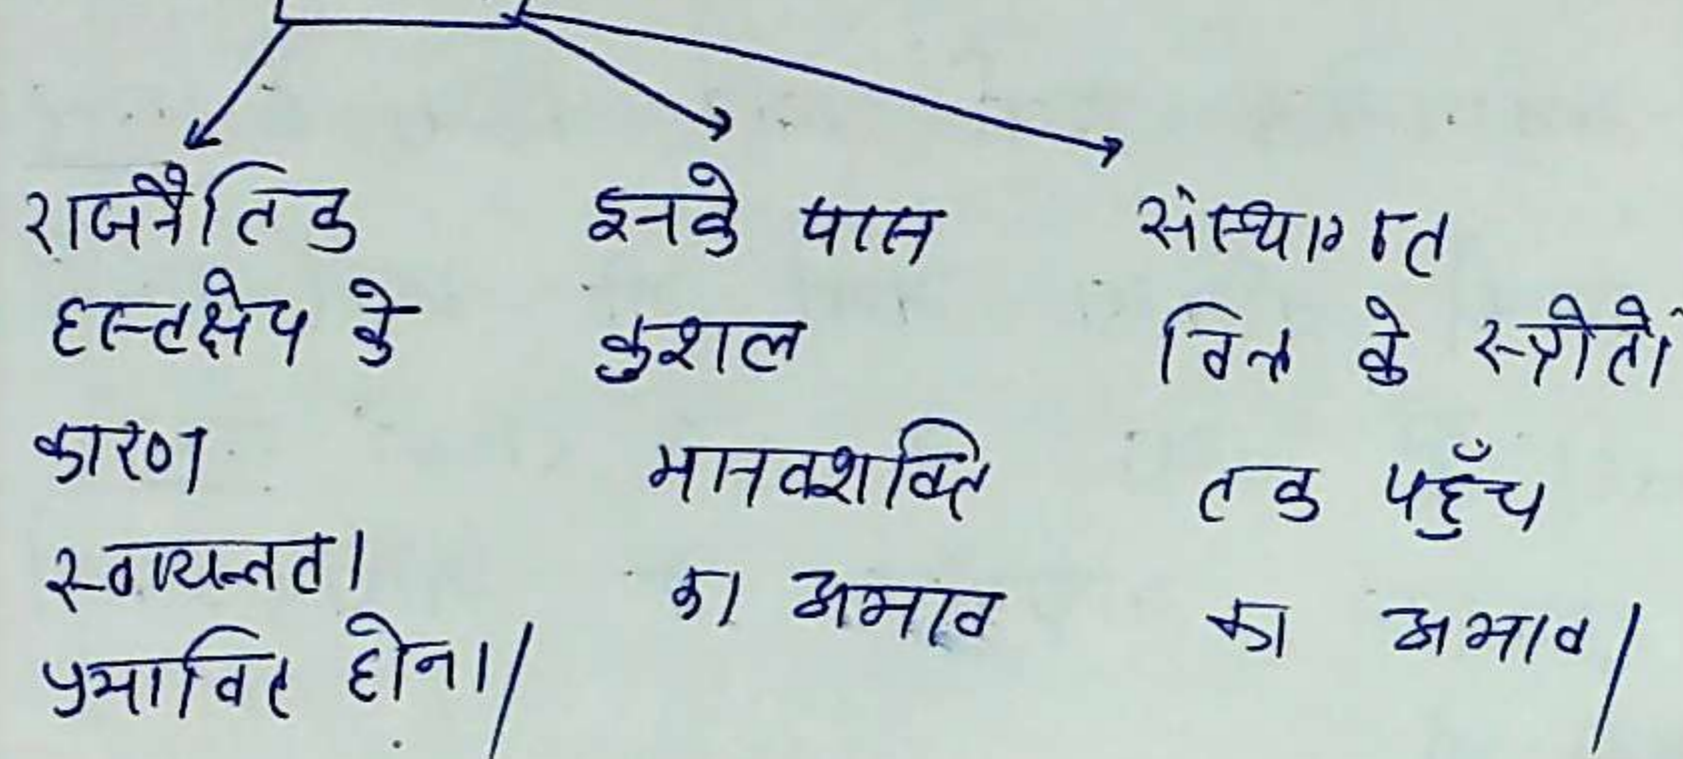 राजनैतिक
हस्तक्षेप के
कारण
स्वायत्तता
प्रभावित होना।
इनके पास
कुशल
मानवशक्ति
का अभाव
संस्थागत
वित्त के स्त्रोतों
तक पहुँच
का अभाव।